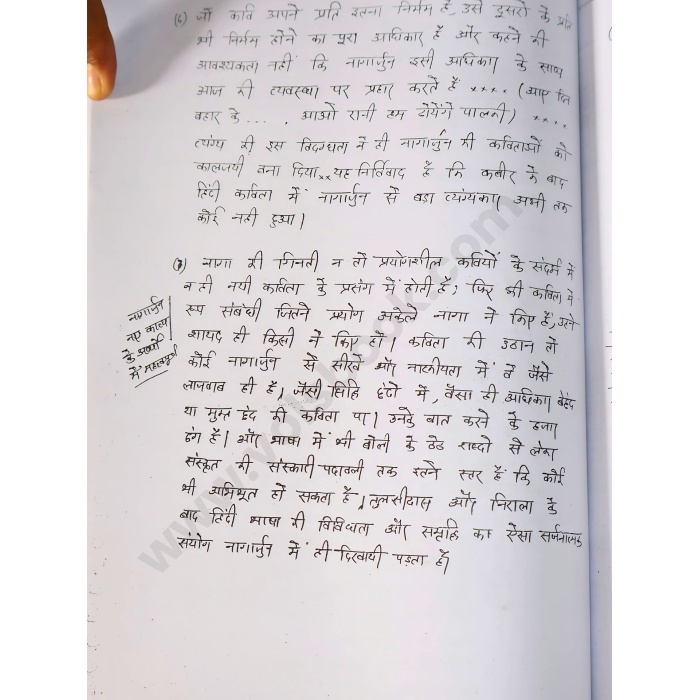 (6) जो कवि अपने प्रति इतना निर्मम है, उसे दूसरों के प्रति
भी निर्मम होने का पूरा अधिकार है और कहने की
आवश्यकता नहीं कि नागार्जुन इसी अधिकार के साथ
आज की व्यवस्था पर प्रहार करते हैं ×××× (आए दिन
बहार के ..., आओ रानी हम ढोयेंगे पालकी) ××××
व्यंग्य की इस विदग्धता ने ही नागार्जुन की कविताओं को
कालजयी बना दिया ×× यह निर्विवाद है कि कबीर के बाद
हिंदी कविता में नागार्जुन से बड़ा व्यंग्यकार अभी तक
कोई नही हुआ।
(7) नागा की गिनती न तो प्रयोगशील कवियों के संदर्भ में
न ही नयी कविता के प्रसंग में होती है; फिर भी कविता में
रूप संबंधी जितने प्रयोग अकेले नागा ने किए हैं, उतने
शायद ही किसी ने किए हों। कविता की उठान तो
कोई नागार्जुन से सीखे और नाटकीयता में वे जैसे
लाजवाब ही हैं, जैसी सिद्धि छंदो में, वैसा ही अधिकार बेछंद
या मुक्त छंद की कविता पर। उनके बात करने के हजार
ढंग हैं। और भाषा में भी बोली के ठेठ शब्दो से लेकर
संस्कृत की संस्कारी पदावली तक इतने स्तर हैं कि कोई
भी अभिभूत हो सकता है, तुलसीदास और निराला के
बाद हिंदी भाषा की विविधता और समृद्धि का ऐसा सर्जनात्मक
संयोग नागार्जुन में ही दिखायी पड़ता है।
नागार्जुन
नए काव्य
के
में महत्वपूर्ण